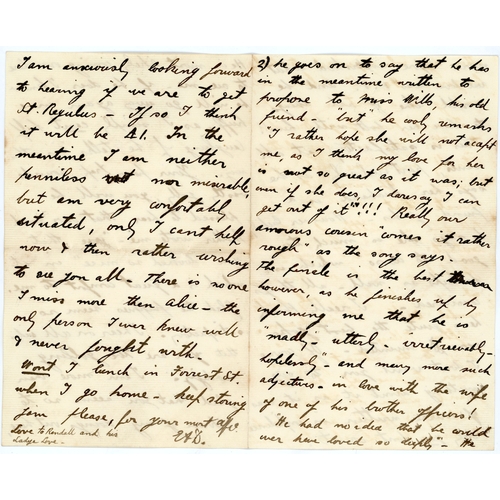 I am anxiously looking forward
to hearing if we are to get
St. Regulus - If so I think
it will be A1. In the
meantime I am neither
penniless nor miserable,
but am very comfortably
situated, only I cant help
now & then rather wishing
to see you all - There is no one
I miss more than Alice - the
only person I ever knew well
& never fought with -
Wont I lunch in Forrest St.
when I go home - keep storing
jam please, for your most affte
EAD.
Love to Kendall and his
Ladye Love -
2) he goes on to say that he has
in the meantime written to
propone to Miss Mills, his old
friend - "but" he cooly remarks
"I rather hope she will not accept
me, as I think my love for her
is not so great as it was; but
even if she does, I daresay I can
get out of it"!!! Really our
amorous cousin "comes it rather
rough" as the song says.
The finale is the best
however, as he finishes up by
informing me that he is
"madly - utterly - irretrievably -
hopelessly" - and many more such
adjectives - in love with the wife
of one of his brother officers!
"He had no idea that he could
ever have loved so deeply" - He